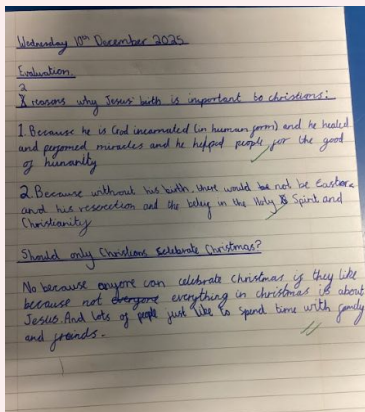 Wednesday 10th December 2025
Evaluation.
2
reasons why Jesus' birth is important to christians:
1. Because he is God incarnated (in human form) and he healed
and perfomed miracles and he helped people for the good
of humanity
2. Because without his birth, there would be not be Easter
and his reserection and the belief in the Holy Spirit and
Christianity
Should only Christians celebrate Christmas?
No because anyone can celebrate Christmas if they like
because not everyone everything in christmas is about
Jesus. And lots of people just like to spend time with family
and freinds.